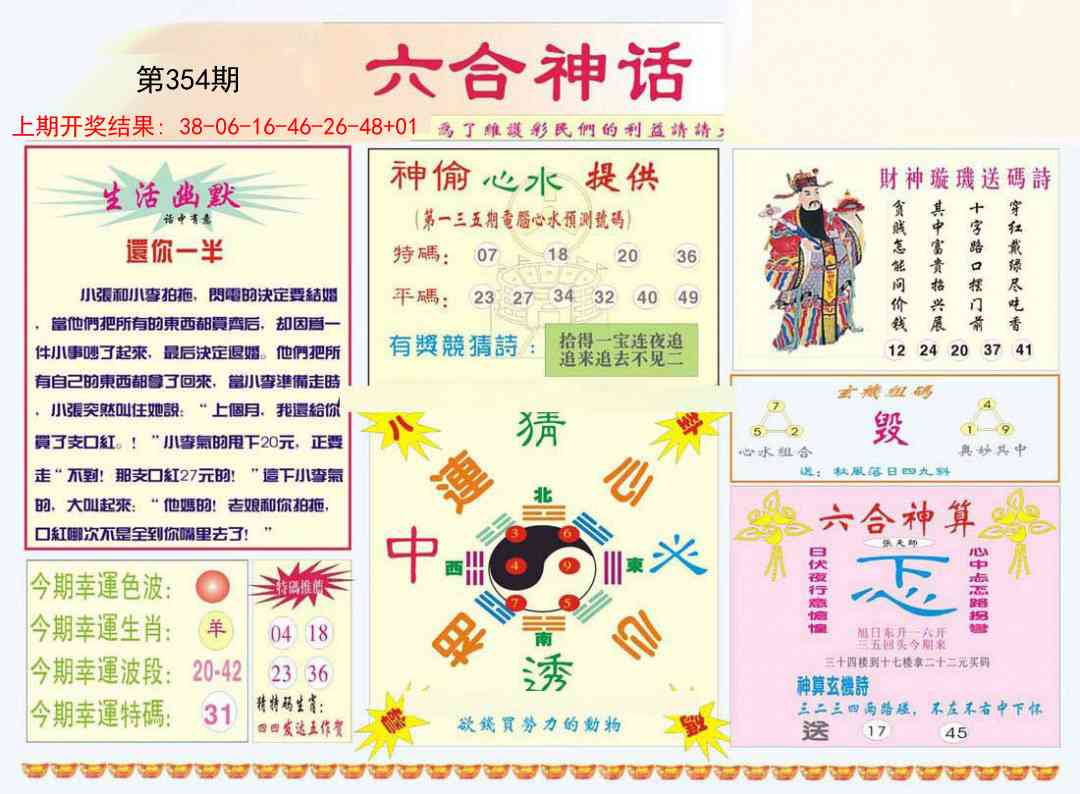 第354期
六合神话
上期开奖结果: 38-06-16-46-26-48+01
為了維護彩民們的利益請請
生活幽默
話中有意
還你一半
小張和小李拍拖，閃電的決定要結婚
，當他們把所有的東西都買齊后，却因爲一
件小事吵了起來，最后決定退婚。他們把所
有自己的東西都拿了回來，當小李準備走時
，小張突然叫住她說：“上個月，我還給你
買了支口紅。！”小李氣的甩下20元，正要
走“不對！那支口紅27元的！”這下小李氣
的，大叫起來：“他媽的！老娘和你拍拖，
口紅哪次不是全到你嘴里去了！”
今期幸運色波：
今期幸運生肖： 羊
今期幸運波段： 20-42
今期幸運特碼： 31
特碼推薦
04 18
23 36
猜特码生肖：
四四发达五作贺
神偷心水提供
(第一三五期電腦心水預測號碼)
特碼： 07 18 20 36
平碼： 23 27 34 32 40 49
有獎競猜詩：
拾得一宝连夜追
追来追去不见二
八
卦
猜
蓮
心
北
中
西
3 6
4 9
7 5
東
火
南
相
心
透
欲錢買勞力的動物
財神璇璣送碼詩
貧賤怎能问价钱
其中富貴招兴展
十字路口摆门前
穿红戴绿尽吃香
12 24 20 37 41
玄機组码
7
5 2
心水组合
毀
4
1 9
奥妙其中
送：秋風落日四九斜
六合神算
張天師
日伏夜行意愴惶
忑
心中忐忑路拐彎
旭日东升一六开
三五回头今期来
三十四楼到十七楼拿二十二元买码
神算玄機詩
三二三四两路碰，不左不右中下怀
送 17 45